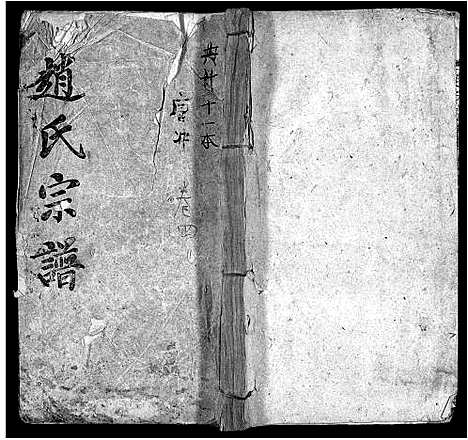 共廿十一本
卷四
趙氏宗譜